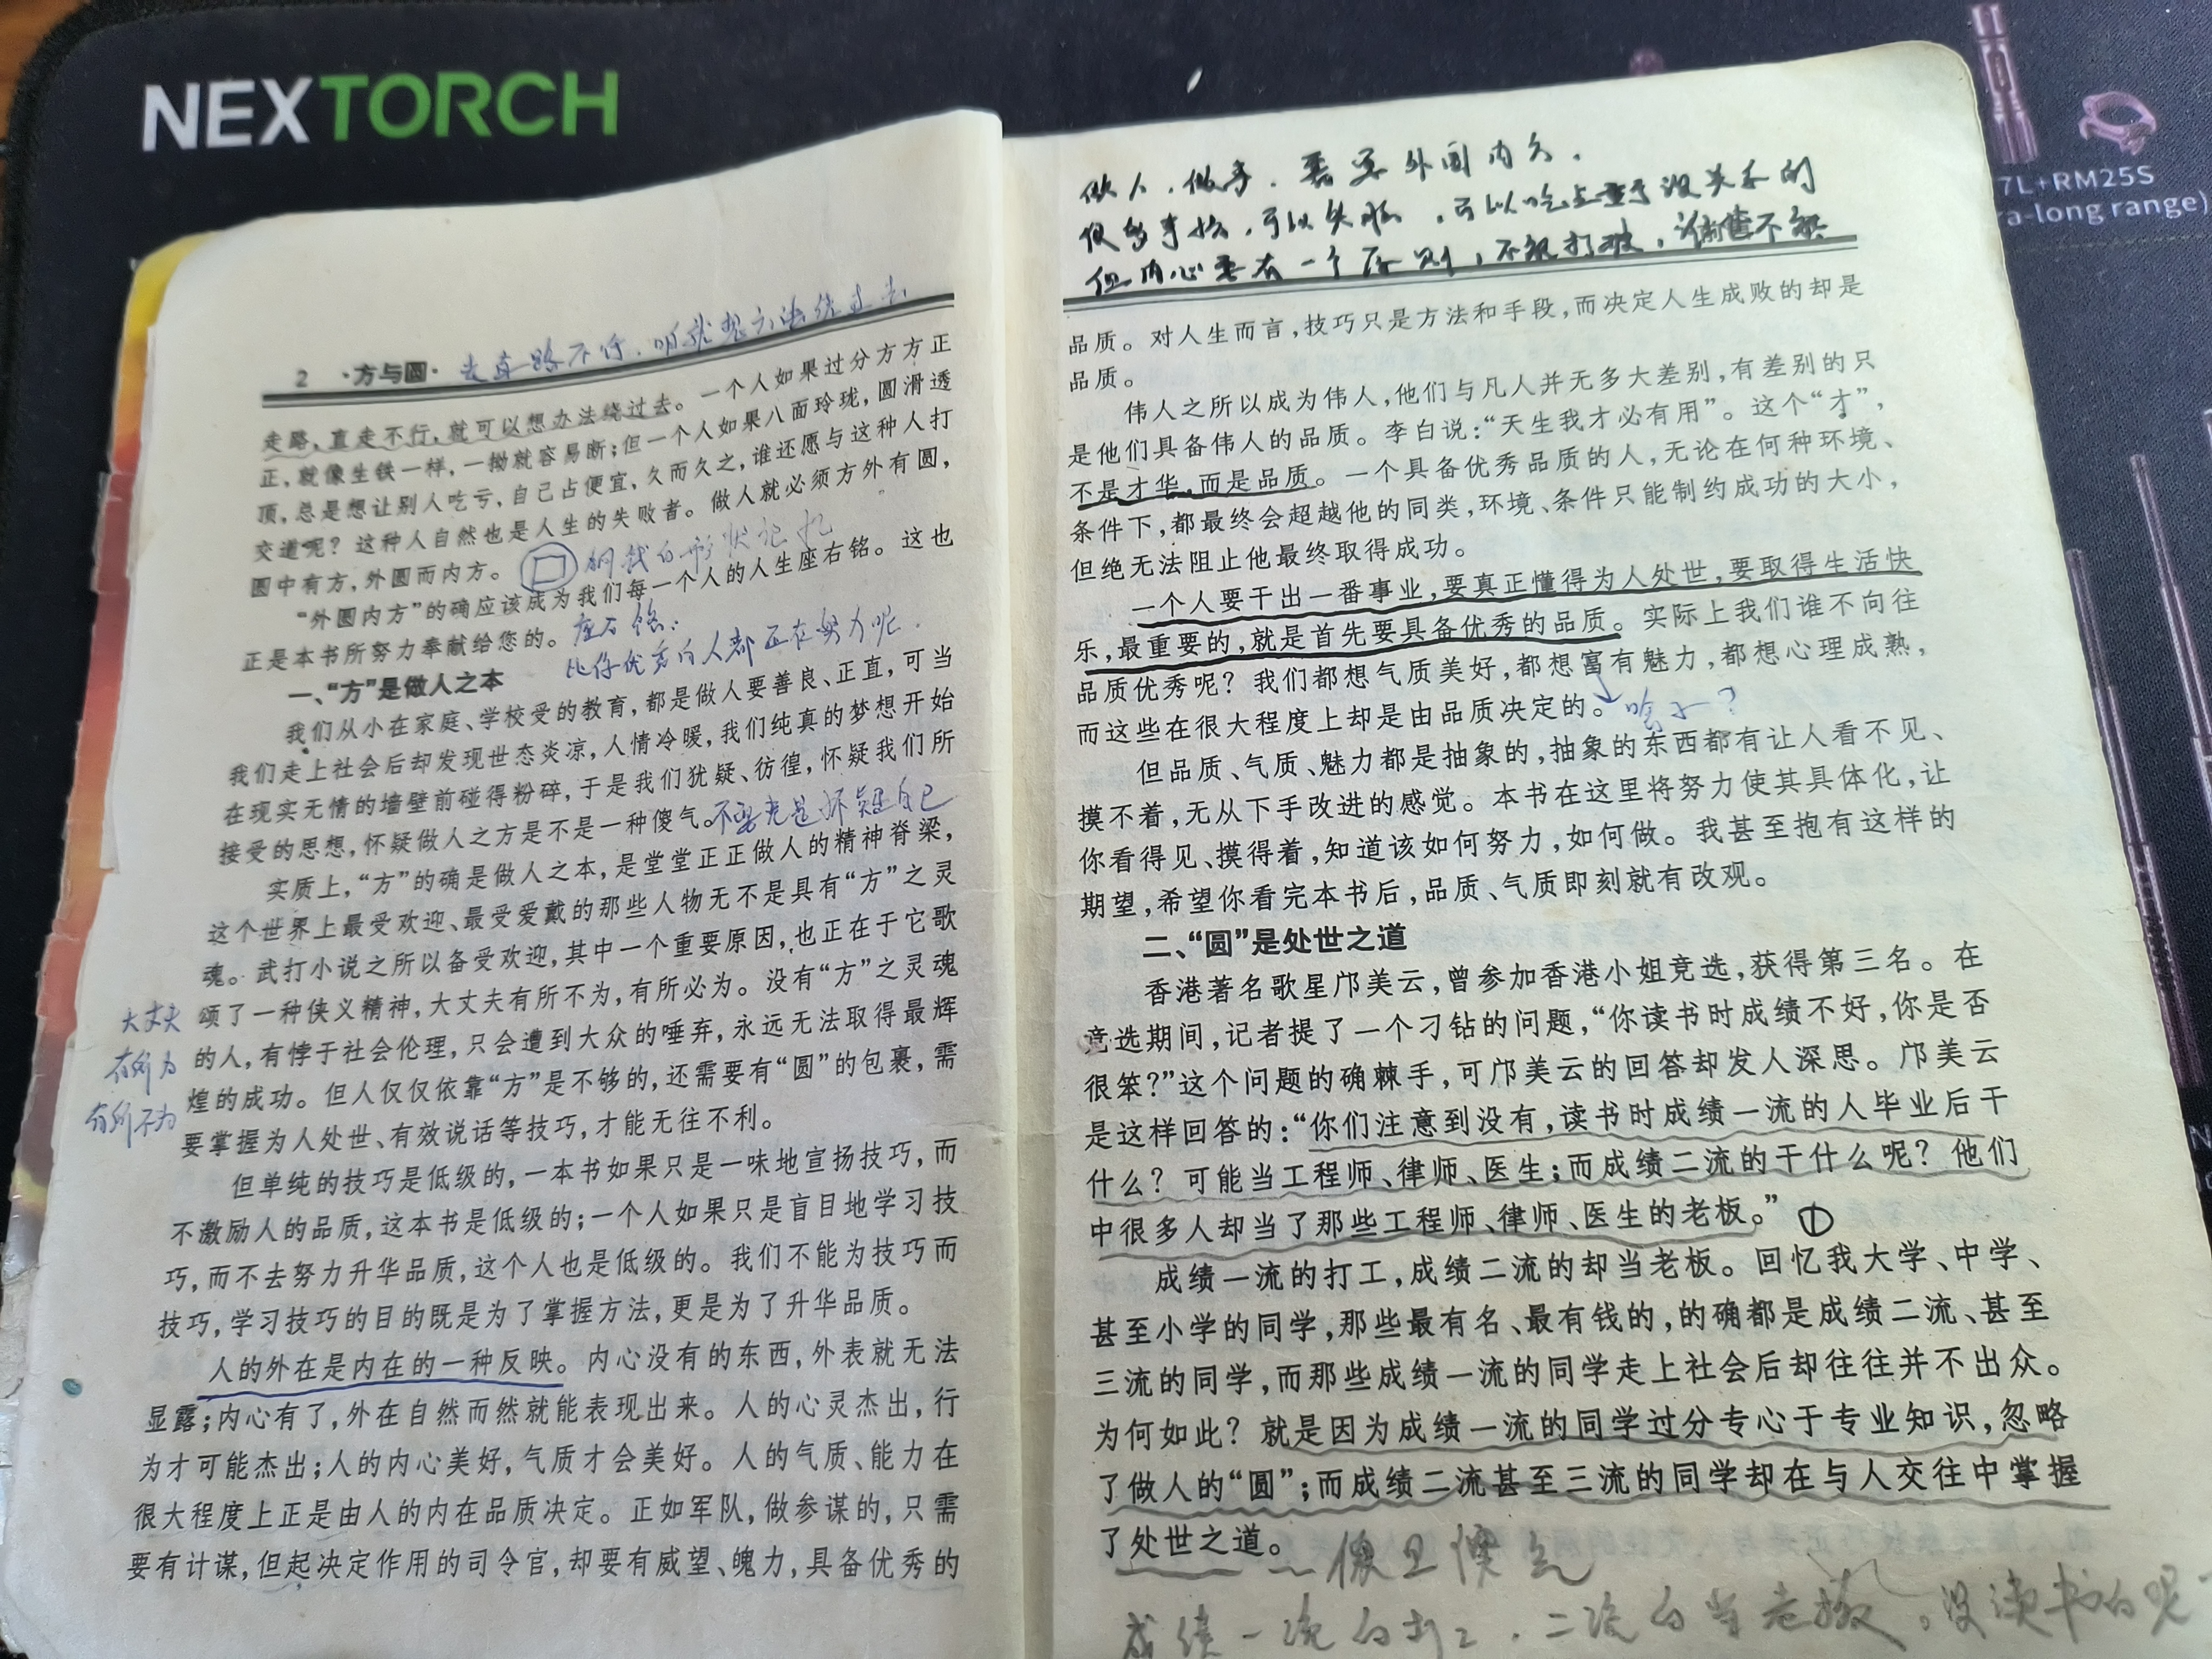 NEXTORCH
7L+RM25S
ra-long range)
2 ·方与圆·
走路，直走不行，就可以想办法绕过去。一个人如果过分方方正
正，就像生铁一样，一拗就容易断；但一个人如果八面玲珑，圆滑透
顶，总是想让别人吃亏，自己占便宜，久而久之，谁还愿与这种人打
交道呢？这种人自然也是人生的失败者。做人就必须方外有圆，
圆中有方，外圆而内方。
“外圆内方”的确应该成为我们每一个人的人生座右铭。这也
正是本书所努力奉献给您的。
座右铭：
比你优秀的人都正在努力呢．
一、“方”是做人之本
我们从小在家庭、学校受的教育，都是做人要善良、正直，可当
我们走上社会后却发现世态炎凉，人情冷暖，我们纯真的梦想开始
在现实无情的墙壁前碰得粉碎，于是我们犹疑、彷徨，怀疑我们所
接受的思想，怀疑做人之方是不是一种傻气。不要老是怀疑自己
实质上，“方”的确是做人之本，是堂堂正正做人的精神脊梁，
这个世界上最受欢迎、最受爱戴的那些人物无不是具有“方”之灵
魂。武打小说之所以备受欢迎，其中一个重要原因，也正在于它歌
颂了一种侠义精神，大丈夫有所不为，有所必为。没有“方”之灵魂
的人，有悖于社会伦理，只会遭到大众的唾弃，永远无法取得最辉
煌的成功。但人仅仅依靠“方”是不够的，还需要有“圆”的包裹，需
要掌握为人处世、有效说话等技巧，才能无往不利。
大丈夫
有所为
有所不为
但单纯的技巧是低级的，一本书如果只是一味地宣扬技巧，而
不激励人的品质，这本书是低级的；一个人如果只是盲目地学习技
巧，而不去努力升华品质，这个人也是低级的。我们不能为技巧而
技巧，学习技巧的目的既是为了掌握方法，更是为了升华品质。
人的外在是内在的一种反映。内心没有的东西，外表就无法
显露；内心有了，外在自然而然就能表现出来。人的心灵杰出，行
为才可能杰出；人的内心美好，气质才会美好。人的气质、能力在
很大程度上正是由人的内在品质决定。正如军队，做参谋的，只需
要有计谋，但起决定作用的司令官，却要有威望、魄力，具备优秀的
做人．做事．需要外圆内方．
可以失败，可以吃点亏没关系的
但内心要有一个原则，不能打破，
品质。对人生而言，技巧只是方法和手段，而决定人生成败的却是
品质。
伟人之所以成为伟人，他们与凡人并无多大差别，有差别的只
是他们具备伟人的品质。李白说：“天生我才必有用”。这个“才”，
不是才华，而是品质。一个具备优秀品质的人，无论在何种环境、
条件下，都最终会超越他的同类，环境、条件只能制约成功的大小，
但绝无法阻止他最终取得成功。
一个人要干出一番事业，要真正懂得为人处世，要取得生活快
乐，最重要的，就是首先要具备优秀的品质。实际上我们谁不向往
品质优秀呢？我们都想气质美好，都想富有魅力，都想心理成熟，
而这些在很大程度上却是由品质决定的。
但品质、气质、魅力都是抽象的，抽象的东西都有让人看不见、
摸不着，无从下手改进的感觉。本书在这里将努力使其具体化，让
你看得见、摸得着，知道该如何努力，如何做。我甚至抱有这样的
期望，希望你看完本书后，品质、气质即刻就有改观。
二、“圆”是处世之道
香港著名歌星邝美云，曾参加香港小姐竞选，获得第三名。在
竞选期间，记者提了一个刁钻的问题，“你读书时成绩不好，你是否
很笨？”这个问题的确棘手，可邝美云的回答却发人深思。邝美云
是这样回答的：“你们注意到没有，读书时成绩一流的人毕业后干
什么？可能当工程师、律师、医生；而成绩二流的干什么呢？他们
中很多人却当了那些工程师、律师、医生的老板。” ①
成绩一流的打工，成绩二流的却当老板。回忆我大学、中学、
甚至小学的同学，那些最有名、最有钱的，的确都是成绩二流、甚至
三流的同学，而那些成绩一流的同学走上社会后却往往并不出众。
为何如此？就是因为成绩一流的同学过分专心于专业知识，忽略
了做人的“圆”；而成绩二流甚至三流的同学却在与人交往中掌握
了处世之道。
成绩一流的打工．二流的当老板。没读书的呢